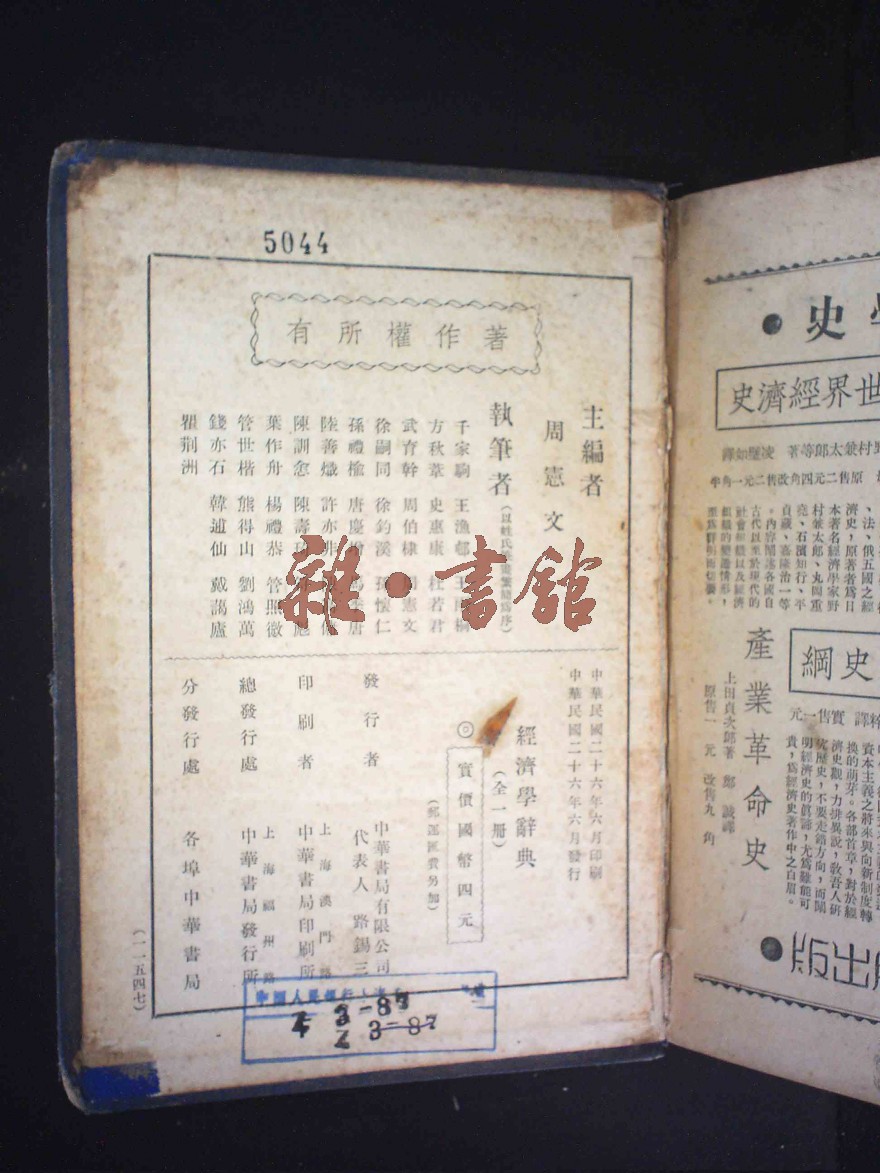 5044
著作權所有
主編者
周憲文
執筆者（以姓氏筆畫繁簡為序）
千家駒 王漁邨
方秋葦 史惠康 杜若君
武育幹 周伯棣 周憲文
徐嗣同 徐鈞溪 孫懷仁
孫禮楡 唐慶增
陸善熾 許亦非
陳訓悆 陳壽琦
葉作舟 楊禮恭 管照微
管世楷 熊得山 劉鴻萬
錢亦石 韓逋仙 戴藹廬
瞿荊洲
雜·書館
中華民國二十六年六月印刷
中華民國二十六年六月發行
經濟學辭典
（全一册）
◎實價國幣四元
（郵運匯費另加）
發行者
中華書局有限公司
代表人 路錫三
印刷者
上海澳門路
中華書局印刷所
總發行處
上海福州路
中華書局發行所
分發行處
各埠中華書局
（一一五四七）
中國人民銀行
3-87
3-87
史學
世界經濟史
野村兼太郎等著 凌璧如譯
原售二元四角改售二元一角半
、法、俄五國之經
濟史，原著者爲日
本著名經濟學家野
村兼太郎、丸岡重
堯、石濱知行、平
貞蔵、嘉隆治一等
。內容闡述各國自
古代以至於現代的
社會組織以及經濟
組織的變遷情形，
史綱
譯 實售一元
資本主義之將來與向新制度轉
換的萌芽。各部首章，對於經
濟史觀，力排異說，敎吾人研
究歷史，不要走錯方向，而闡
明經濟史的眞諦，尤爲難能可
貴，爲經濟史著作中之白眉。
產業革命史
上田貞次郎著 鄭誠譯
原售一元 改售九角
出版